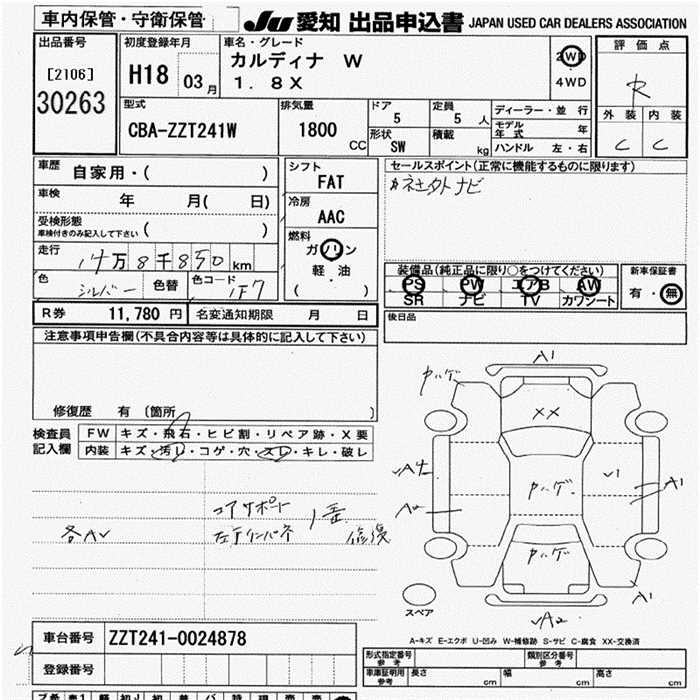 車内保管・守衛保管
JU 愛知 出品申込書 JAPAN USED CAR DEALERS ASSOCIATION
出品番号
[2106]
30263
初度登録年月
H18 03月
車名・グレード
カルディナ W
1.8X
2WD
4WD
評価点
R
外装 内装
C C
型式
CBA-ZZT241W
排気量
1800
CC
ドア
5
定員
5人
形状
SW
積載
kg
ディーラー・並行
モデル年式 年
ハンドル 左・右
車歴
自家用・( )
車検
年 月( 日)
受検形態
車検付きのみ記入して下さい ( )
走行
14万8千850km
色
シルバー
色替
色コード
1F7
シフト
FAT
冷房
AAC
燃料
ガソリン
軽・油
( )
セールスポイント(正常に機能するものに限ります)
ナビ
装備品(純正品に限り○をつけてください)
PS PW エアB AW
SR ナビ TV カワシート
新車保証書
有・無
R券 11,780円
名変通知期限 月 日
後日品
注意事項申告欄(不具合内容等は具体的に記入して下さい)
修復歴 有 〔箇所 〕
検査員
記入欄
FW キズ・飛石・ヒビ割・リペア跡・X要
内装 キズ・汚レ・コゲ・穴・スレ・キレ・破レ
コアサポート
修復
A1
カハゲ
XX
A1
カハゲ
カハゲ
A1
A2
スペア
A-キズ E-エクボ U-凹み W-補修跡 S-サビ C-腐食 XX-交換済
車台番号 ZZT241-0024878
登録番号
型式指定番号
参考
類別区分番号
参考
車庫証明用
参考
長さ cm
幅 cm
高さ cm